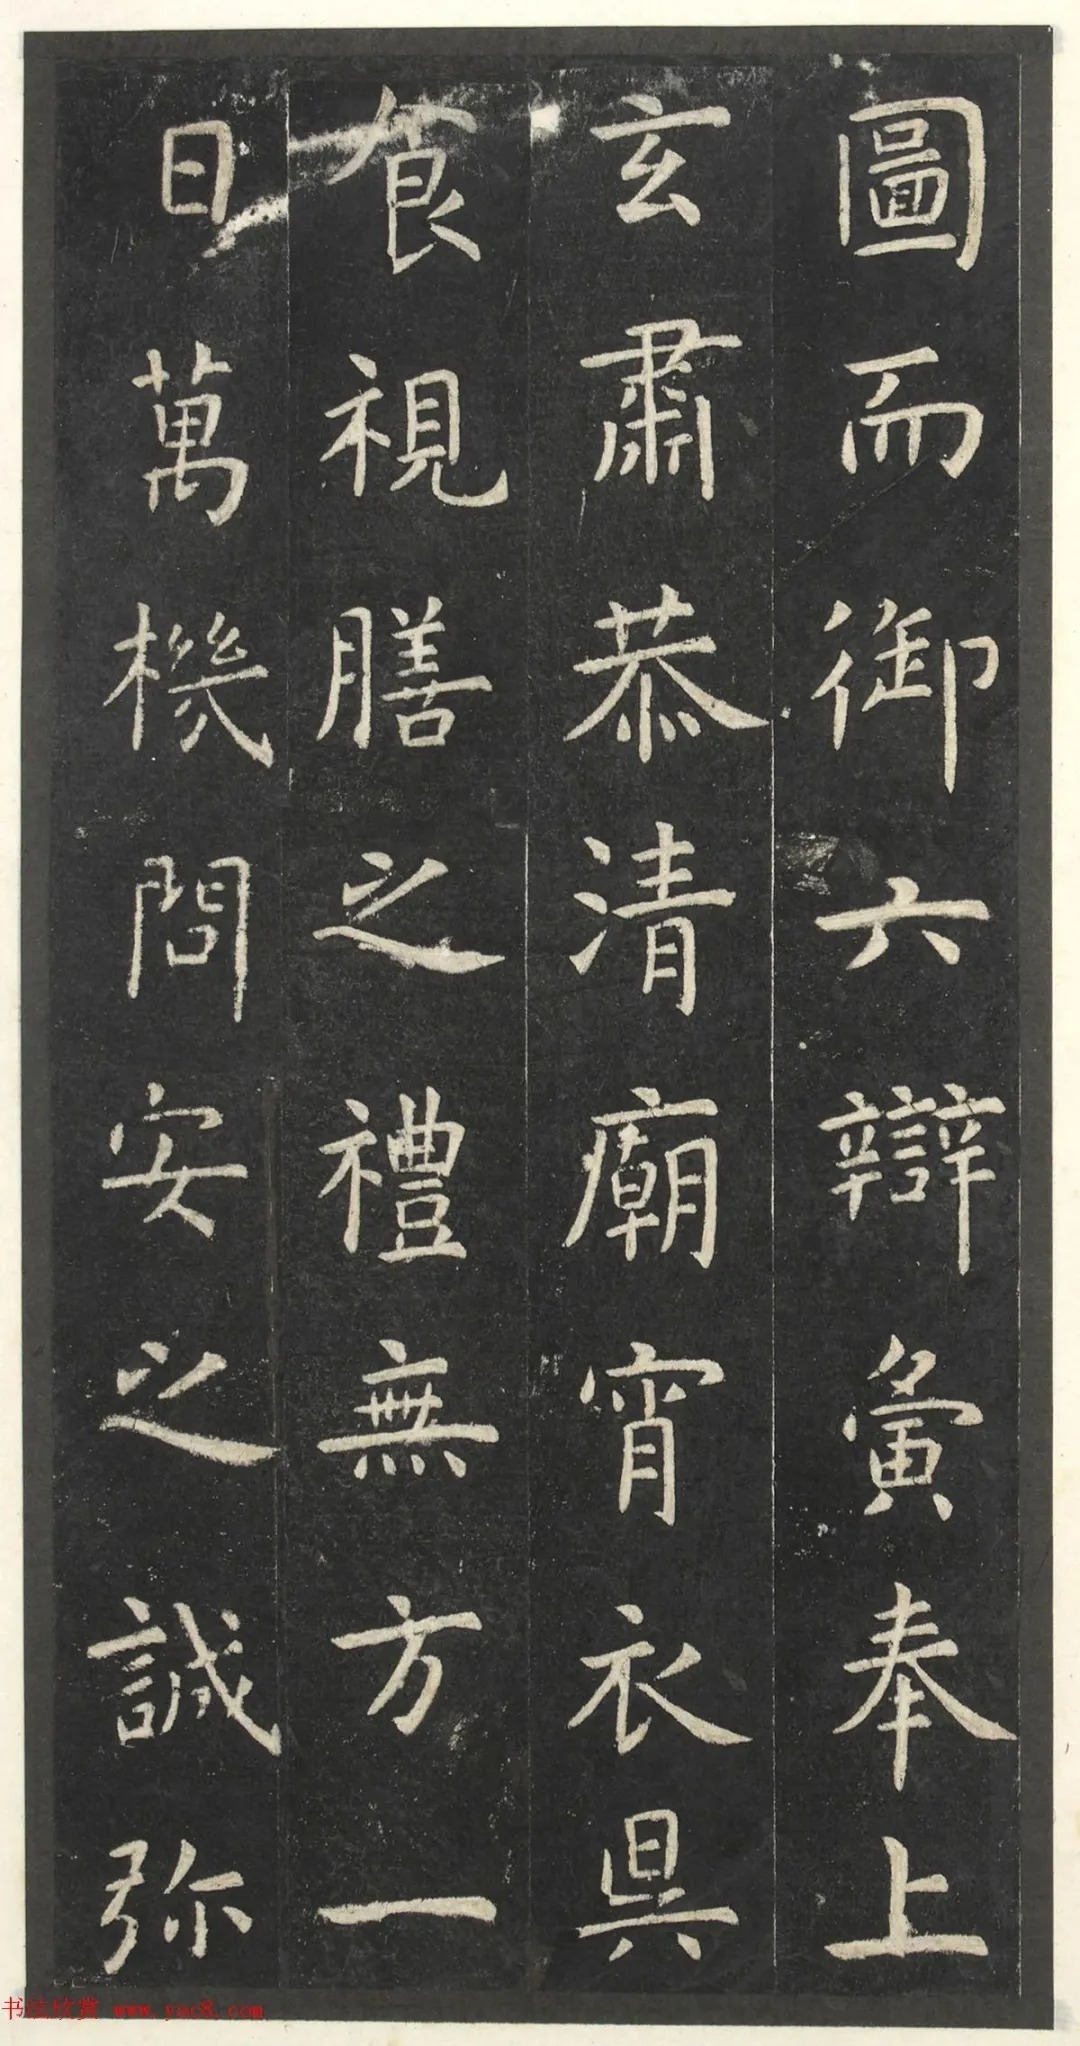 圖而御六辯彙奉上
玄肅恭清廟宵衣昃
食視膳之禮無方一
日萬機問安之誠弥
书法欣赏 www.yac8.com